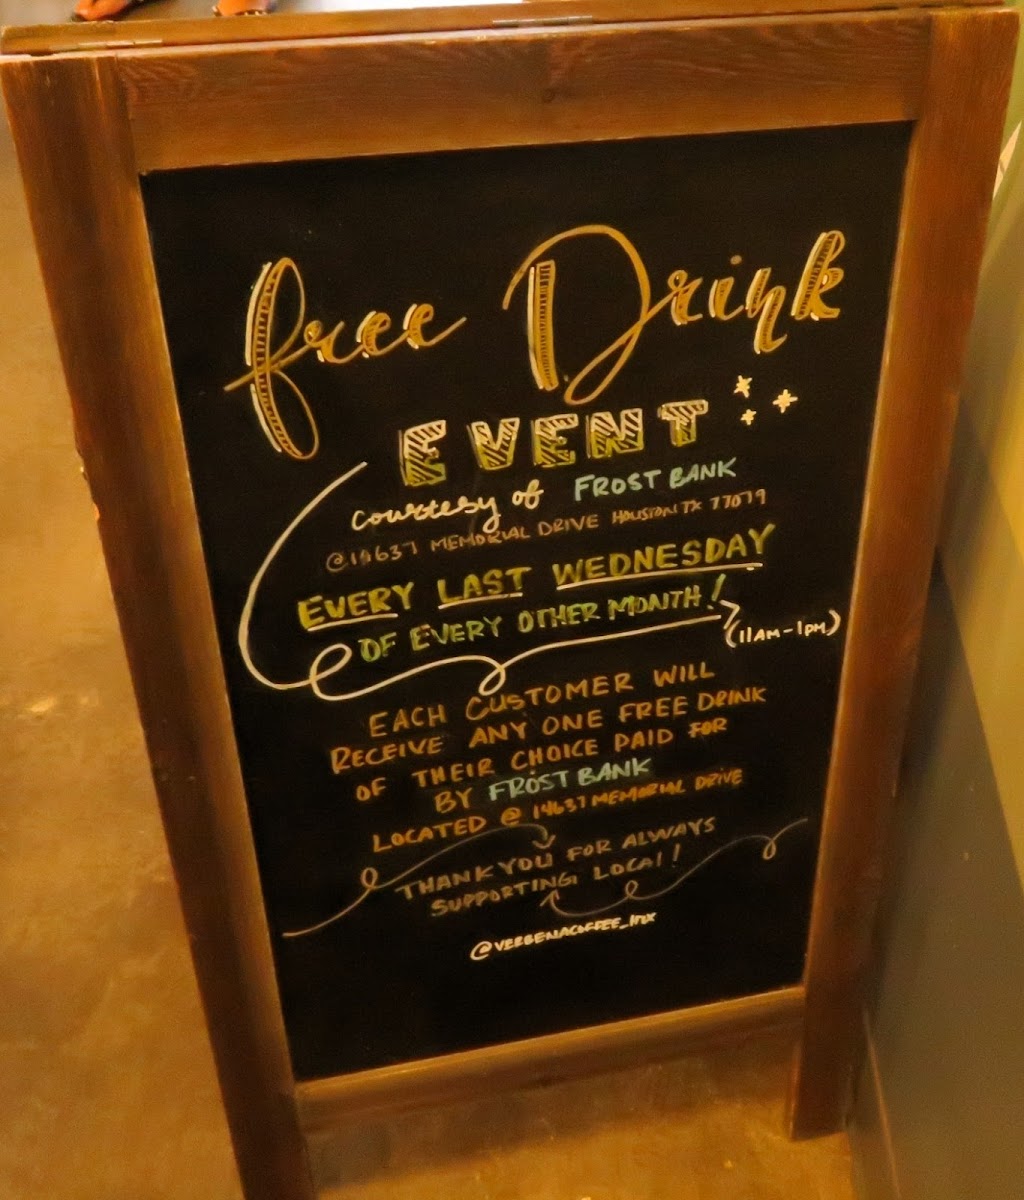 free Drink
EVENT
courtesy of FROST BANK
@14637 MEMORIAL DRIVE HOUSTON TX 77079
EVERY LAST WEDNESDAY
OF EVERY OTHER MONTH!
(11AM-1PM)
EACH CUSTOMER WILL
RECEIVE ANY ONE FREE DRINK
OF THEIR CHOICE PAID FOR
BY FROST BANK
LOCATED @ 14637 MEMORIAL DRIVE
THANK YOU FOR ALWAYS
SUPPORTING LOCAL!
@VERBENACOFFEE_HTX